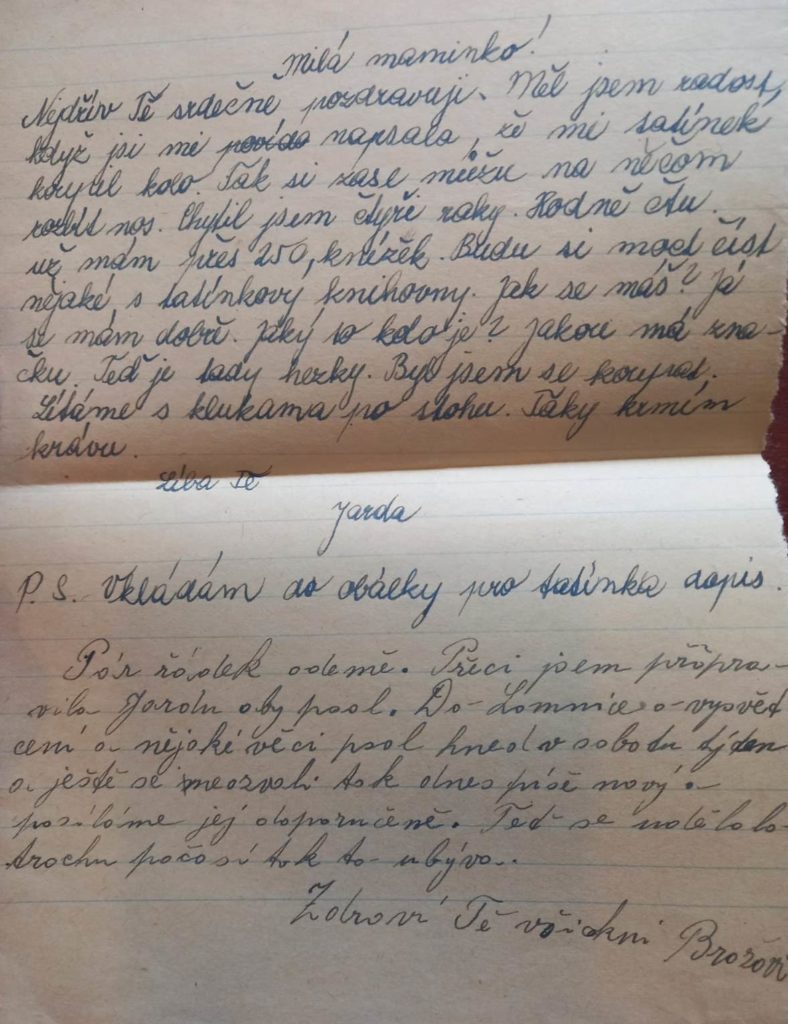 Milá maminko!
Nejdřív Tě srdečně pozdravuji. Měl jsem radost,
když jsi mi napsala, že mi tatínek
koupil kolo. Tak si zase můžu na něčom
rozbít nos. Chytil jsem čtyři raky. Hodně čtu.
už mám přes 250, knížek. Budu si moct číst
nějaké s tatínkovy knihovny. Jak se máš? Já
se mám dobře. Jaký to kolo je? Jakou má zna-
čku. Teď je tady hezky. Byl jsem se koupat.
Lítáme s klukama po stohu. Taky krmím
krávu.
Líbá Tě
Jarda
P. S. Vkládám do obálky pro tatínka dopis.
Pár řádek odemě. Přeci jsem připra-
vila Jardu aby psal. Do Lomnice o vysvět
cení a nějaké věci psal hned v sobotu týden
a ještě se neozvali tak dnes píše nový a
posíláme jej doporučeně. Teď se udělalo
trochu počasí tak to ubývá.
Zdraví Tě všickni Brožovi